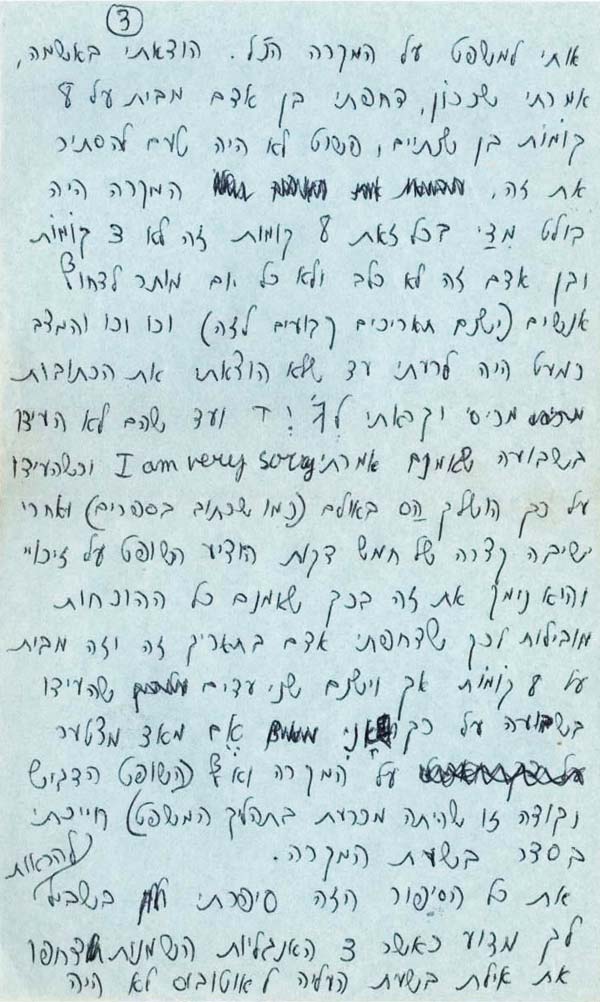 3
אותי למשפט על המקרה הנ"ל. הוצאתי באשמה,
אמרתי שנכון, דחפתי בן אדם מבית על 8
קומות בן שנתיים, פשוט לא היה טעם להסתיר
את זה, המקרה היה
בולט מִדַי בכל זאת 8 קומות זה לא 3 קומות
ובן אדם זה לא כלב ולא כל יום מותר לדחוף
אנשים (ישנם תאריכים קבועים לזה) וכו וכו והמצב
כמעט היה לרעתי עד שלא הוצאתי את הכתובות
מכיס וקראתי ועד שהם לא העידו
בשבועה שאומנם אמרתי I am very sorry וכשהעידו
על כך הושלך הַס באולם (כמו שכתוב בספרים) ואחרי
ישיבה קצרה של חמש דקות הודיע השופט על זיכויי
והוא נימק את זה בכך שאמנם כל ההוכחות
מובילות לכך שדחפתי אדם בתאריך זה וזה מבית
על 8 קומות אך וישנם שני עדים שהעידו
בשבועה על כך שאני מאד מצטער
על המקרה ואף (השופט הדגיש
נקודה זו שהיתה מכרעת בתהליך המשפט) חייכתי
בסדר בשעת המקרה.
את כל הסיפור הזה סיפרתי בשביל להראות
לך מדוע כאשר 3 האנגליות השמנות דחפו
את אילת בשעת העליה לאוטובוס לא היה